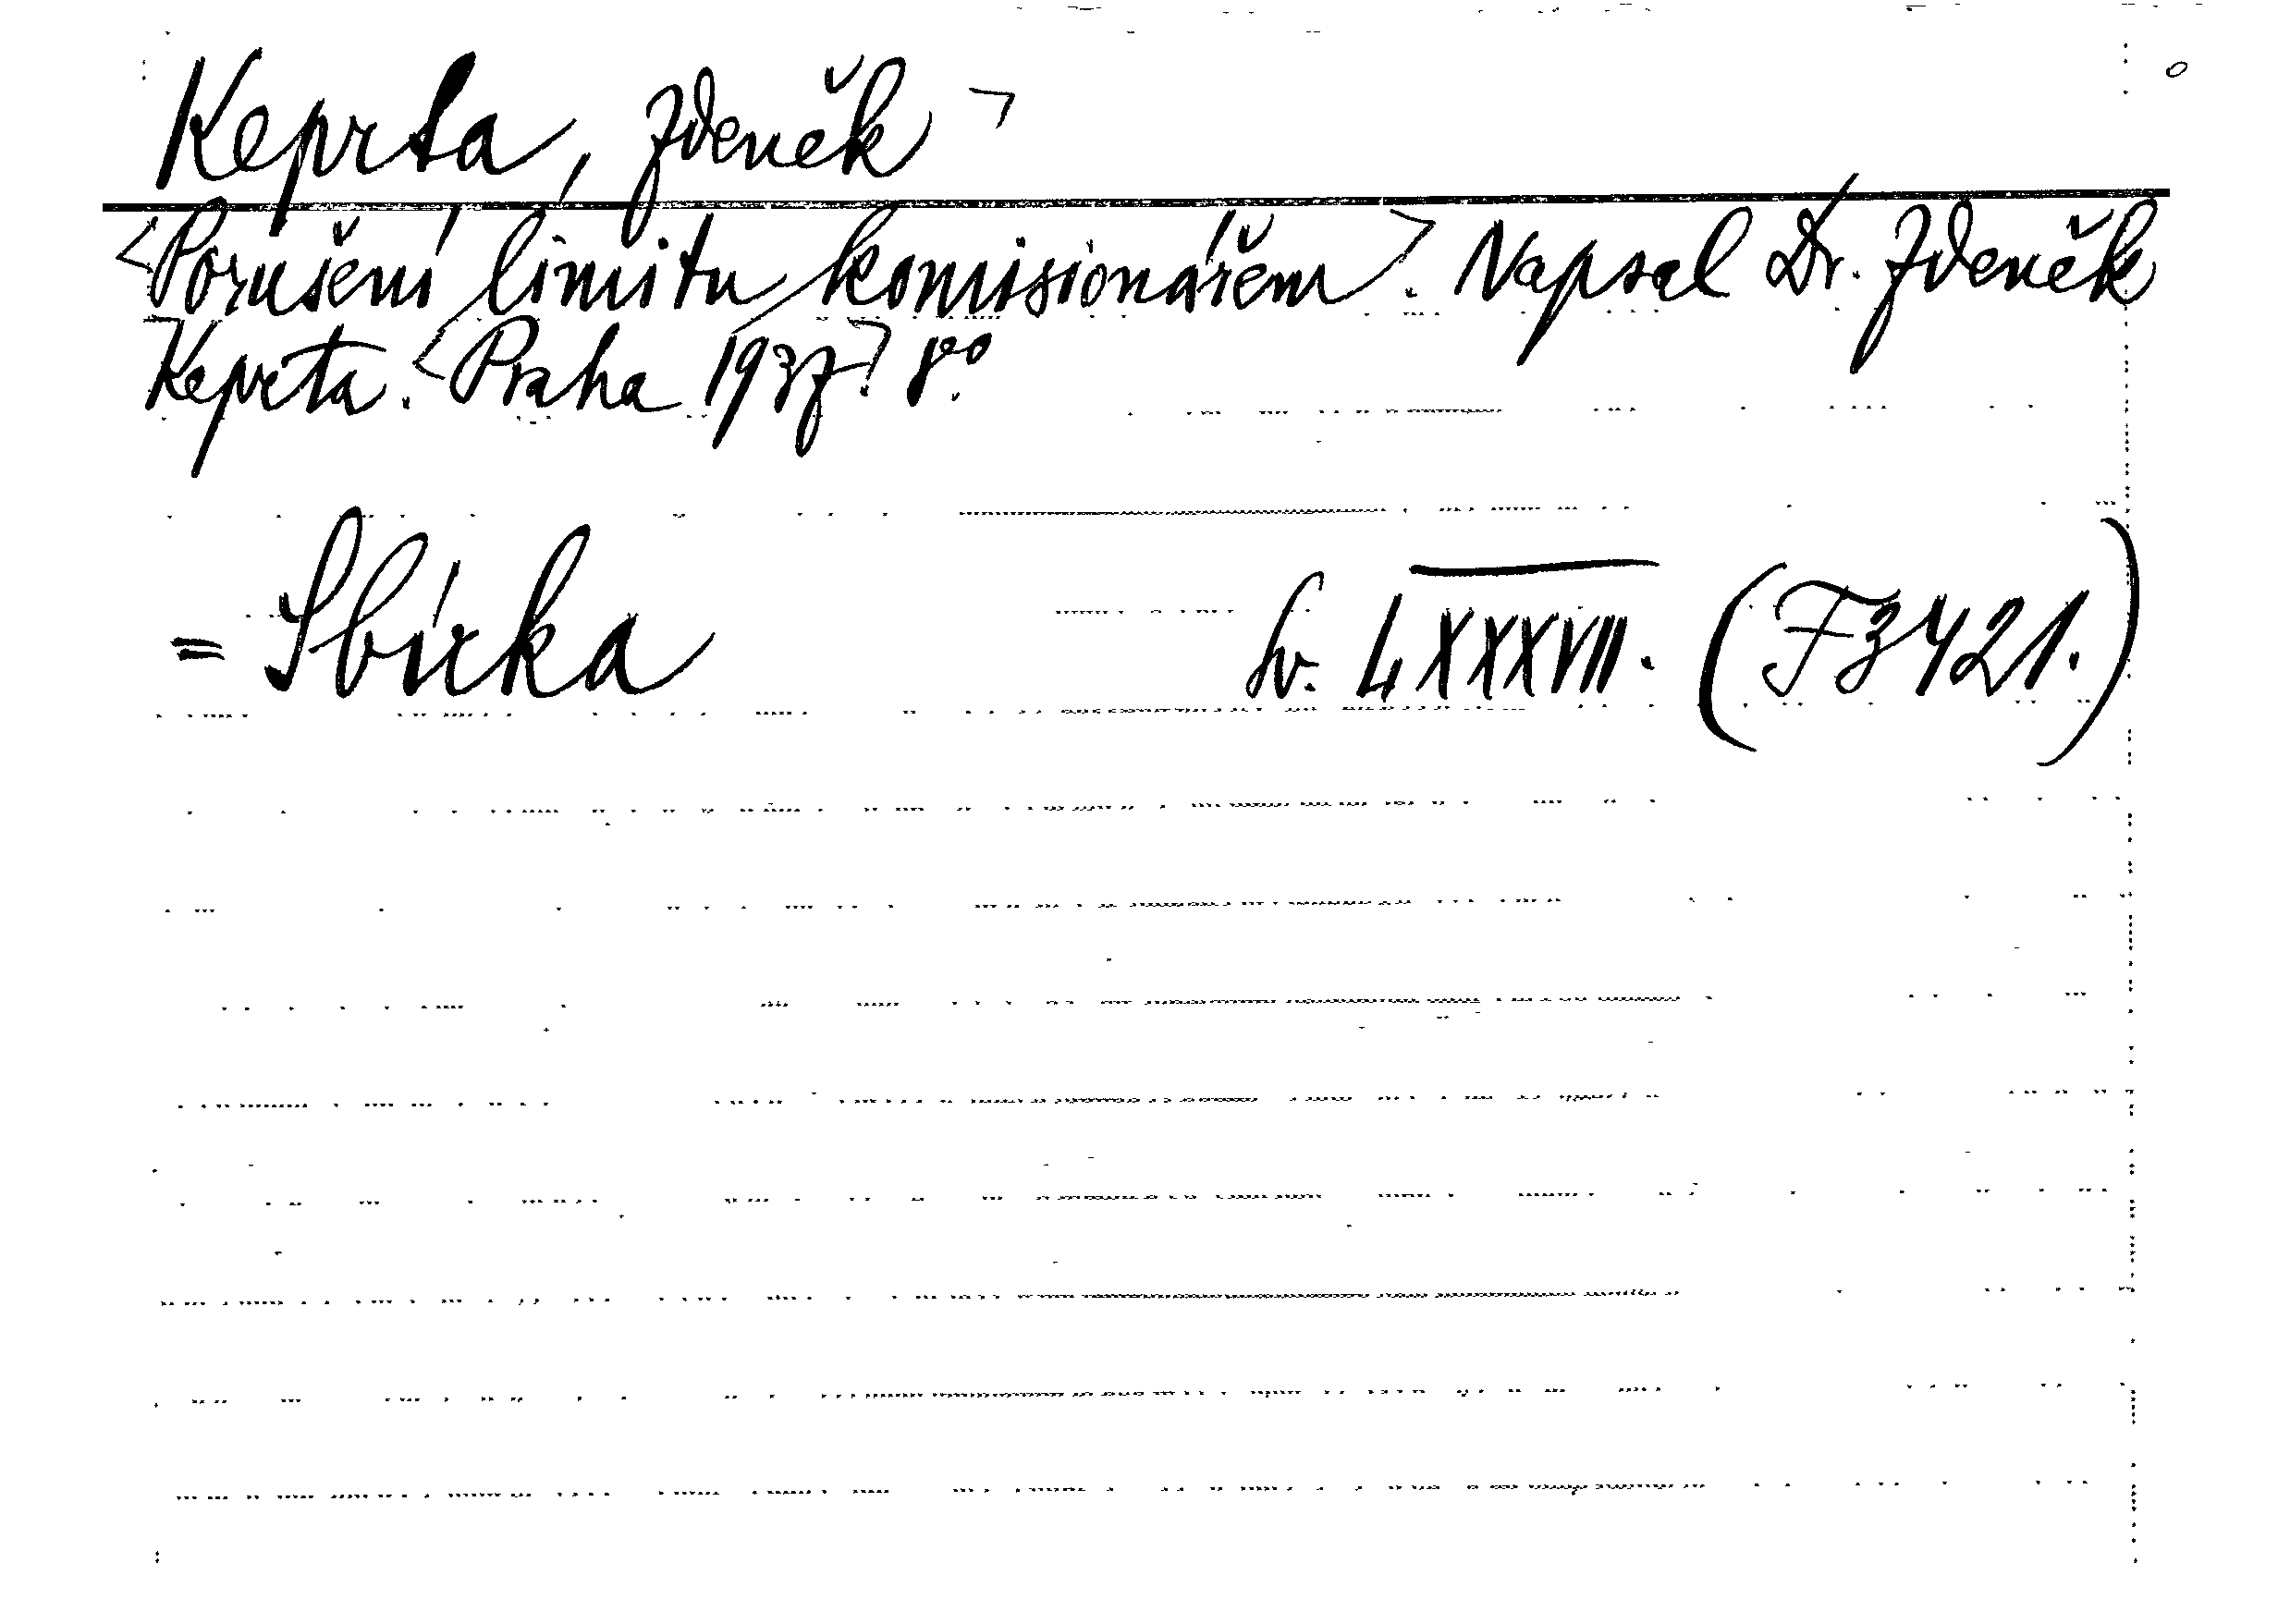 Keprta, Zdeněk ¬
<Porušení limitu komisionářem>. Napsal Dr. Zdeněk
Keprta. <Praha 1937.> 8º.
= Sbírka sv. LXXXVII. (F 3421.)